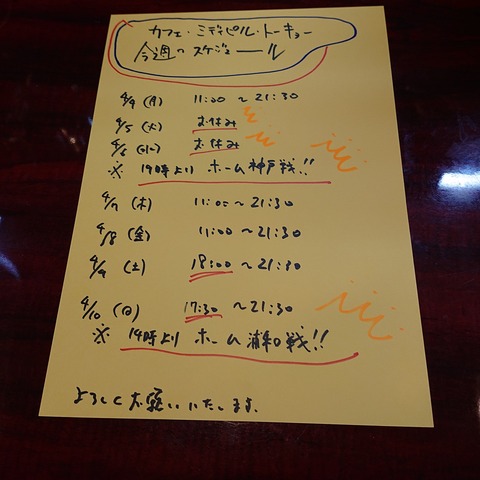 カフェ・ミディピル・トーキョー
今週のスケジュール
4/4 (月) 11:00 ~ 21:30
4/5 (火) お休み
4/6 (水) お休み
※ 19時より ホーム神戸戦!!
4/7 (木) 11:00 ~ 21:30
4/8 (金) 11:00 ~ 21:30
4/9 (土) 18:00 ~ 21:30
4/10 (日) 17:30 ~ 21:30
※ 14時より ホーム浦和戦!!
よろしくお願いいたします.